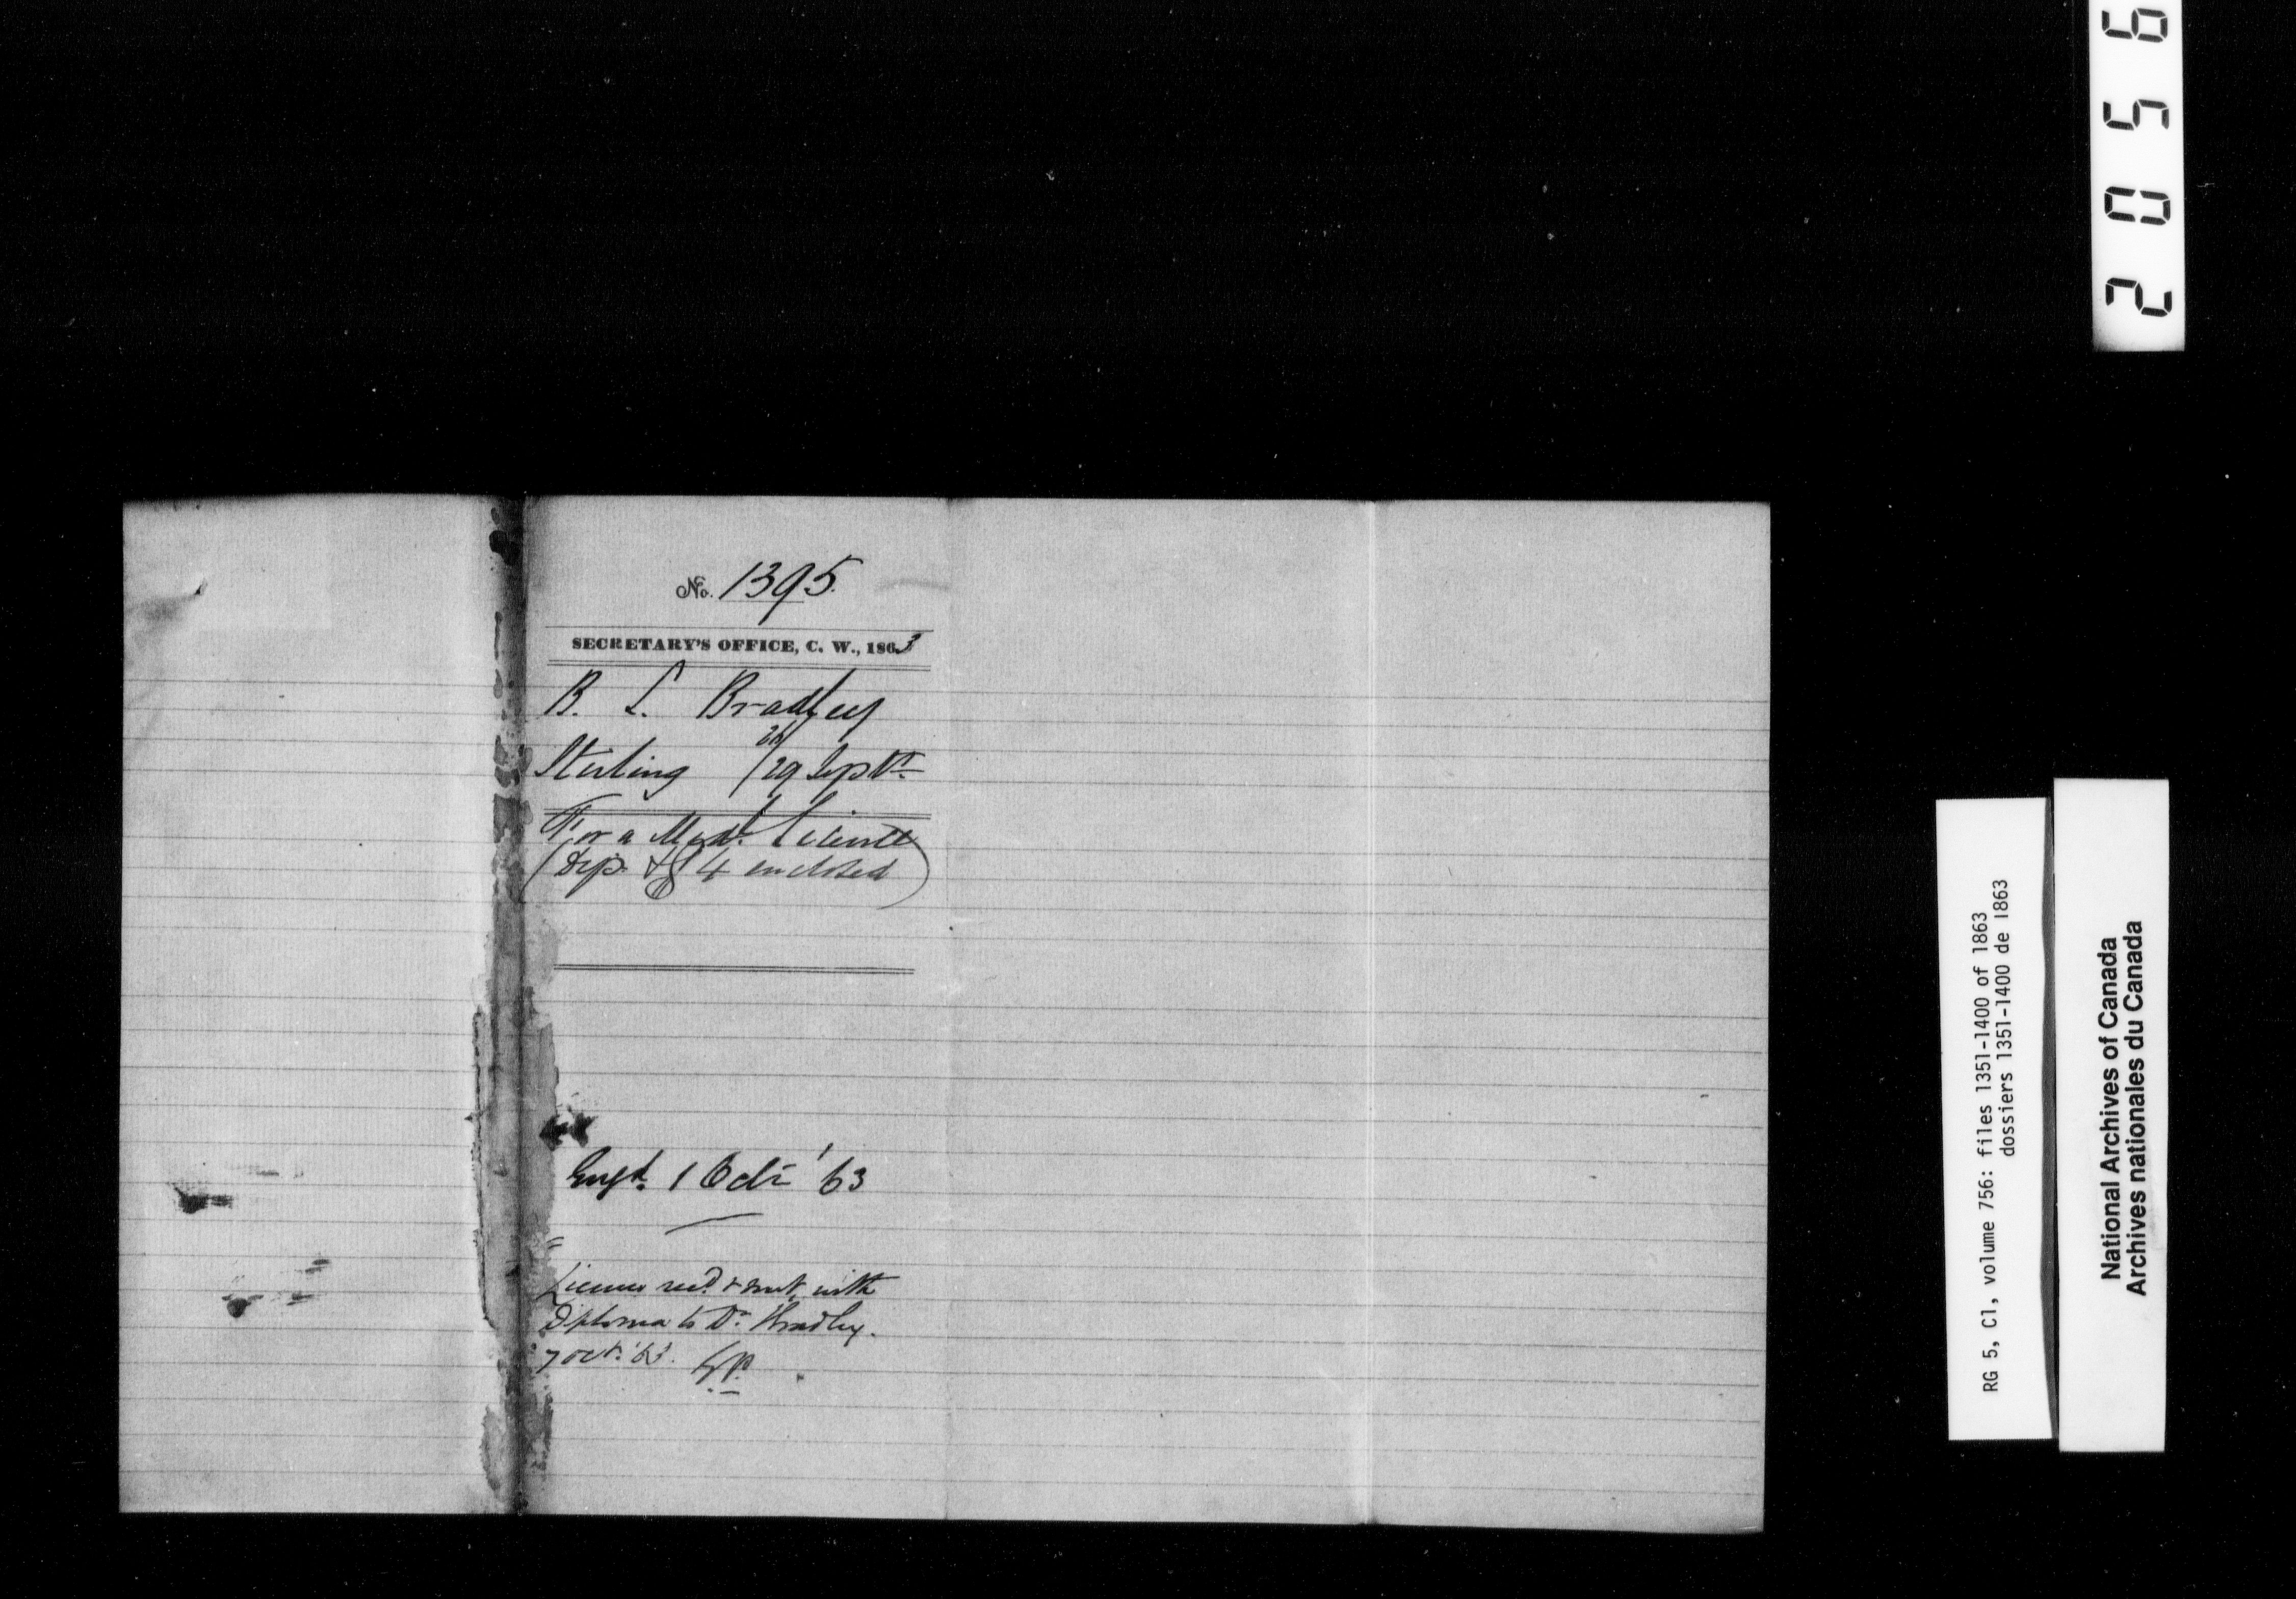 No. 1395.
SECRETARY'S OFFICE, C. W., 1863
B. S. Bradley
Sterling 26/29 Sept.
For a Medl. License
(Dip. & $4 enclosed)
1 Oct. '63
License recd. & sent with
Diploma to Dr. Bradley.
7 Oct. '63.
2056
RG 5, C1, volume 756: files 1351-1400 of 1863
dossiers 1351-1400 de 1863
National Archives of Canada
Archives nationales du Canada